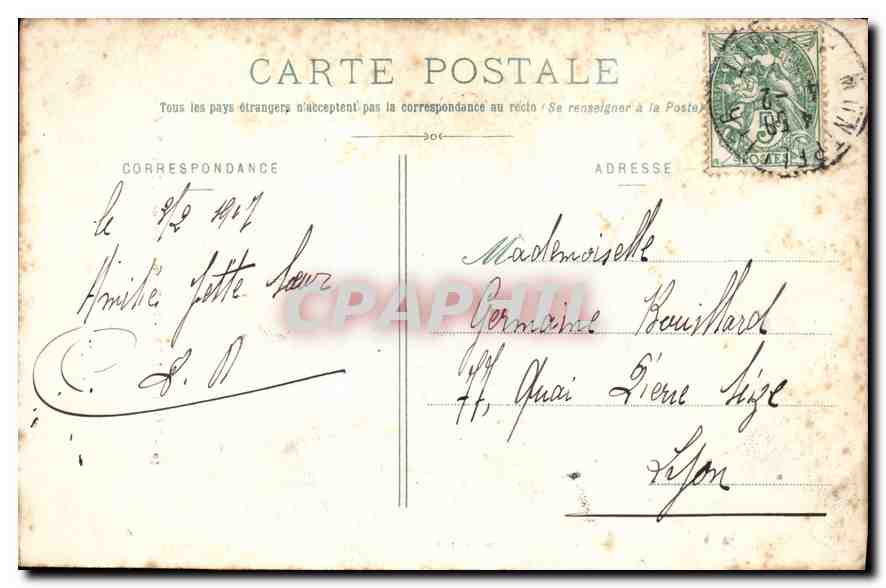 CARTE POSTALE
Tous les pays étrangers n'acceptent pas la correspondance au recto (Se renseigner à la Poste)
CORRESPONDANCE
ADRESSE
le 2/2 1907
Amitiés
Sœur
Mademoiselle
Germaine Bouillard
77, Quai Pierre Seize
Lyon
CPAPHIL
5